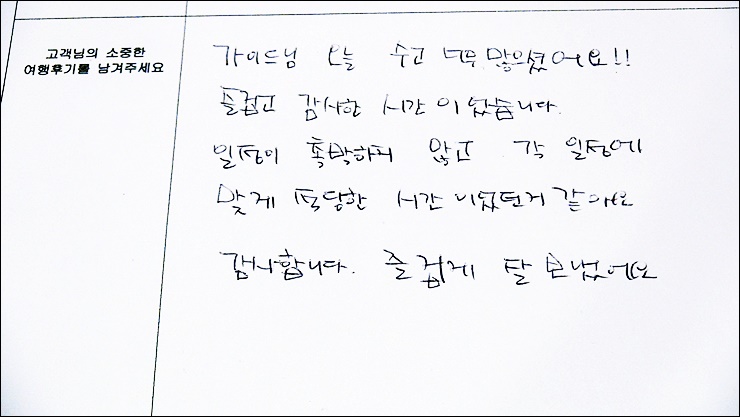 고객님의 소중한
여행후기를 남겨주세요
가이드님 오늘 수고 너무 많으셨어요!!
즐겁고 감사한 시간이었습니다.
일정이 촉박하지 않고 각 일정에
맞게 적당한 시간이었던거 같아요
감사합니다. 즐겁게 잘 보냈어요